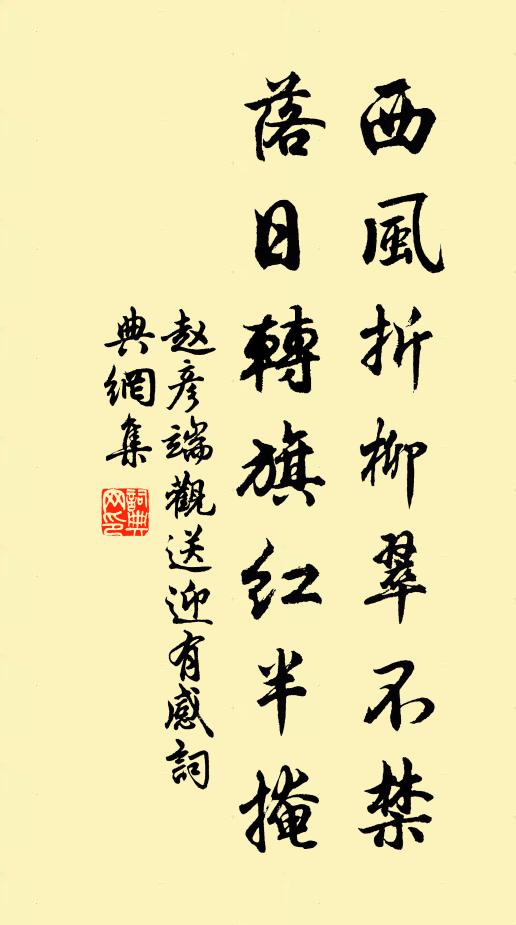 西風折柳翠不禁
落日轉旗红半掩
赵彦端觀送迎有感詞
典網集
詞典网印